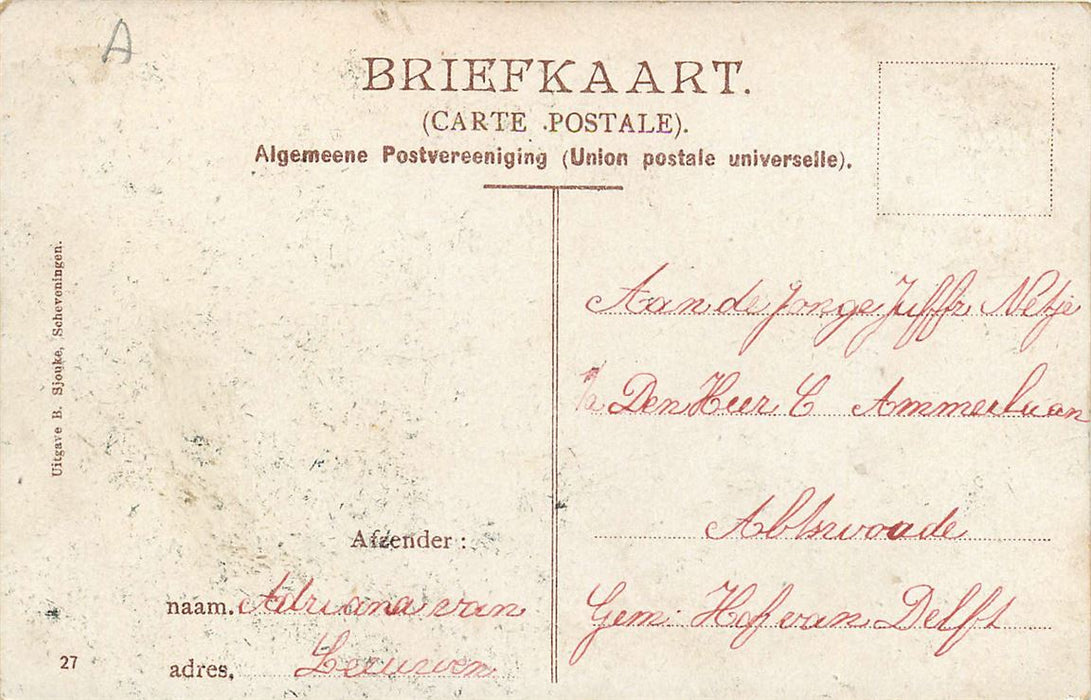 A
BRIEFKAART.
(CARTE POSTALE).
Algemeene Postvereeniging (Union postale universelle).
Uitgave B. Sjouke, Scheveningen.
Aan de Jonge Juffr Netje
p/a Den Heer C Ammerlaan
Abtswoude
Gem. Hof van Delft
Afzender:
naam. Adriana van
adres. Leeuwen
27